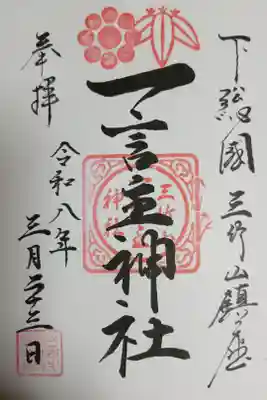 下総國三竹山鎮座
一言主神社
奉拝
令和八年
三月二十三日